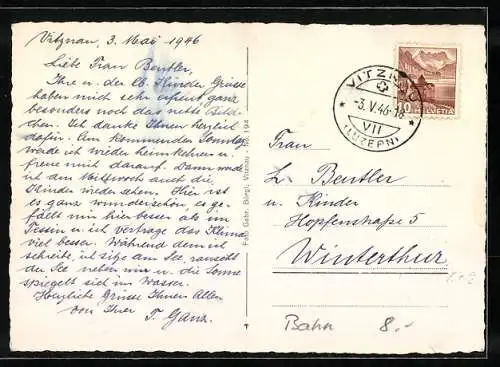 Vitznau, 3. Mai 1946
Liebe Frau Beutler,
Ihre u. der lb. Kinder Grüsse
haben mich sehr erfreut ganz
besonders noch das nette Bild-
chen. Ich danke Ihnen herzlich
dafür. Am kommenden Sonntag
werde ich wieder heimkehren u.
freue mich darauf. Dann werde
ich am Mittwoch auch die
Kinder wieder sehen. Hier ist
es ganz wunderschön, es ge-
fällt mir hier besser als im
Tessin u. ich vertrage das Klima
viel besser. Während dem ich
schreibe, ich sitze am See, rauscht
der See neben mir u. die Sonne
spiegelt sich im Wasser.
Herzliche Grüsse Ihnen Allen
von Ihrer T. Ganz.
Foto Gebr. Bürgi, Vitznau - No. 194
VITZNAU
-3.V.46-18
VII
(LUZERN)
10 HELVETIA
Frau
L. Beutler
u. Kinder
Hopfenstraße 5
Winterthur
Bahn 8.-